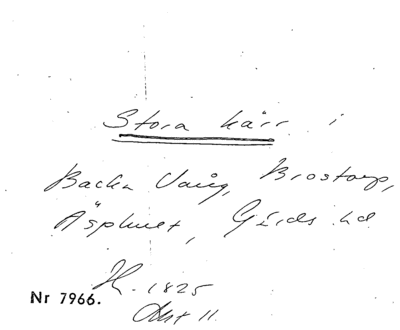 Stora kärr i
Backa Vång, Brostorp,
Äsphult, Gärds hd
H. 1825
Akt 11.
Nr 7966.